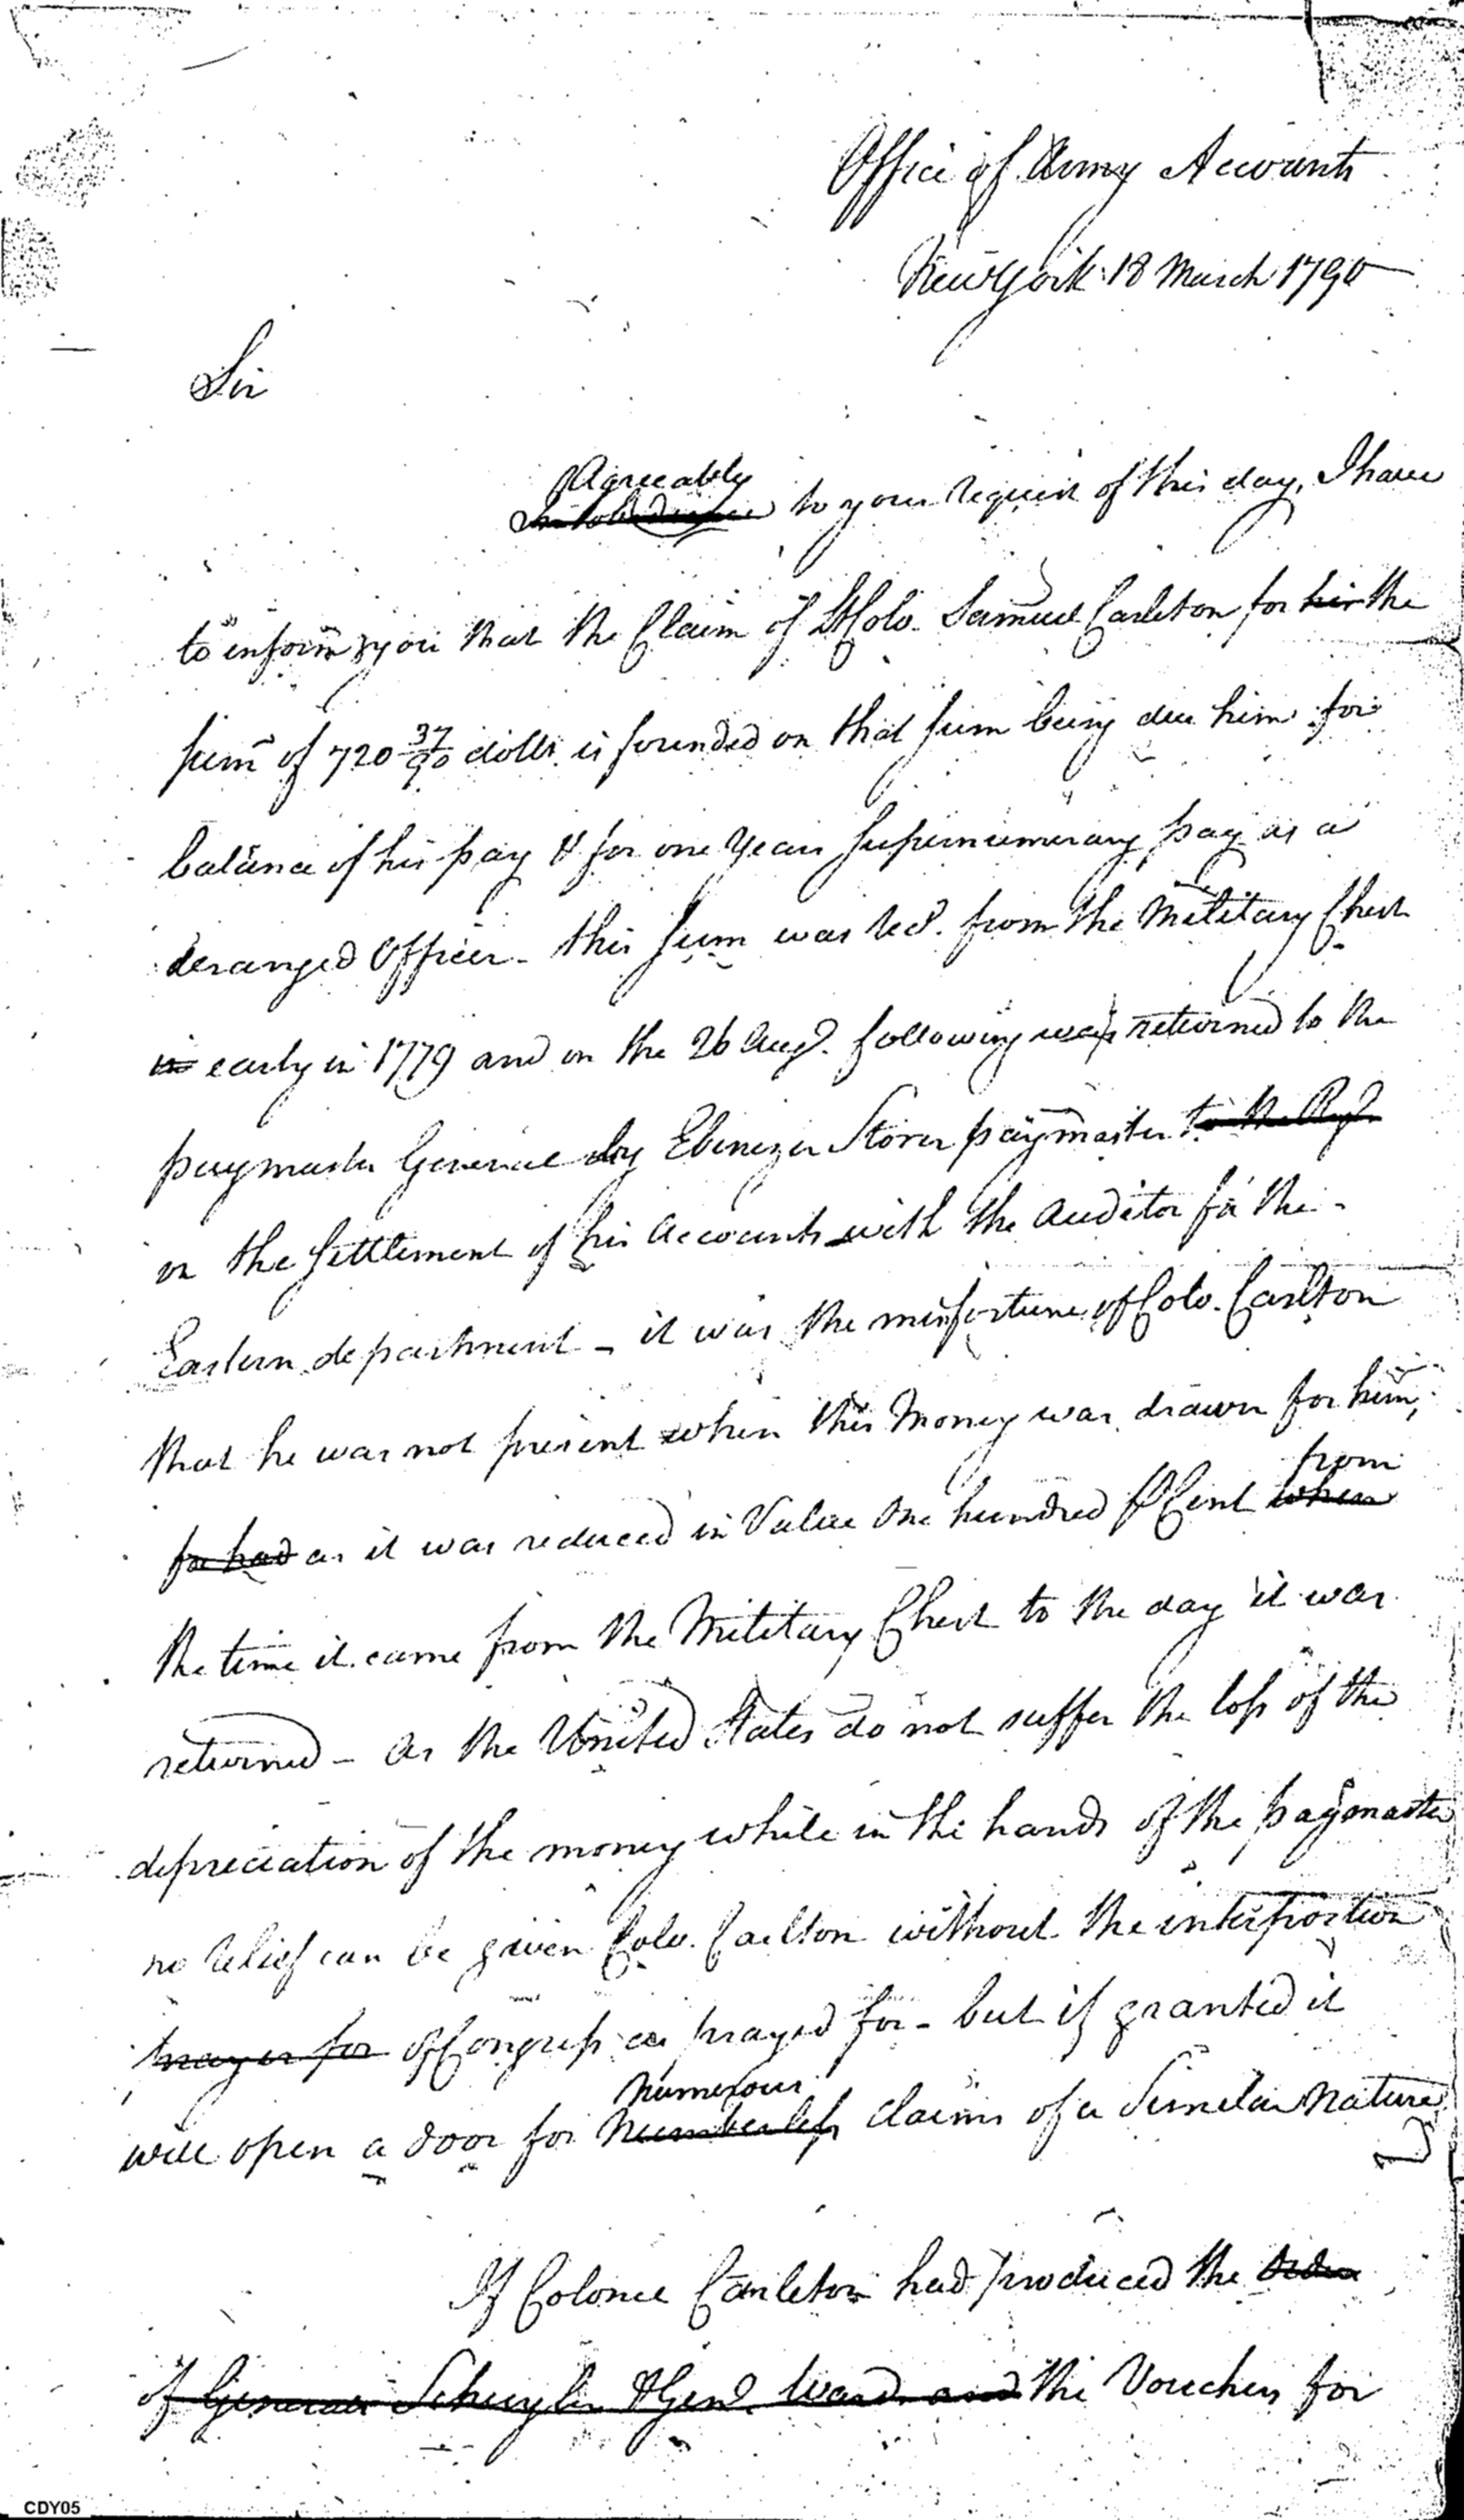 Office of Army Accounts
New York 18 March 1790
Sir
Agreeably
In obedience to your request of this day, I have
to inform you that the Claim of Lt Colo. Samuel Carleton for his the
sum of 720 37/90 dolls. is founded on that sum being due him for
balance of his pay & for one Years Supernumerary pay as a
deranged Officer - this sum was recd. from the Military Chest
in early in 1779 and on the 26 Augt. following was returned to the
paymaster General by Ebenezer Storer paymaster to the Regt.
on the Settlement of his Accounts with the Auditor for the
Eastern department - it was the misfortune of Colo. Carlton
that he was not present when this Money was drawn for him,
from
for had as it was reduced in Value One hundred P Cent when
the time it came from the Military Chest to the day it was
returned - as the United States do not suffer the loss of the
depreciation of the money while in the hands of the paymaster
no relief can be given Colo. Carlton without the interposition
prayer for of Congress as prayed for - but if granted it
numerous
will open a door for numberless claims of a Similar Nature
If Colonel Carleton had produced the Order
of General Schuyler & Genl. Ward and the Vouchers for
CDY05